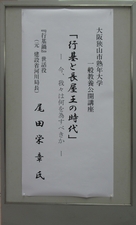 大阪狭山市熟年大学
一般教養公開講座
「行基と長屋王の時代」
― 今、我々は何を為すべきか ―
『行基圖』世話役
(元 建設省河川局長)
尾田栄章氏